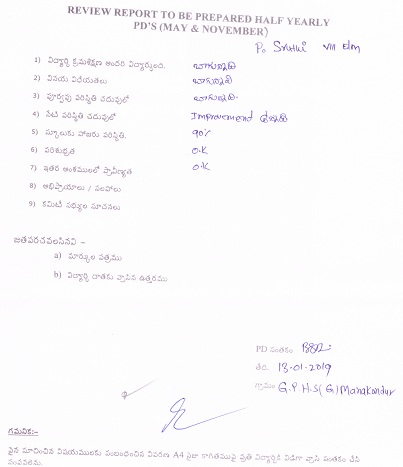 REVIEW REPORT TO BE PREPARED HALF YEARLY
PD'S (MAY & NOVEMBER)
P. Sruthi VIII Elm
1) విద్యార్థి క్రమశిక్షణ అందరి విద్యార్థులది. బాగున్నది
2) వినయ విధేయతలు బాగున్నది
3) పూర్వపు పరిస్థితి చదువులో బాగున్నది.
4) నేటి పరిస్థితి చదువులో Improvemend
5) స్కూలుకు హాజరు పరిస్థితి. 90%
6) పరిశుభ్రత O.K
7) ఇతర అంశములలో ప్రావీణ్యత O.K
8) అభిప్రాయాలు / సలహాలు
9) కమిటీ సభ్యుల సూచనలు
జతపరచవలసినవి :-
a) మార్కుల పత్రము
b) విద్యార్థి దాతకు వ్రాసిన ఉత్తరము
PD సంతకం
తేది. 13-01-2019
గ్రామం G.P.H.S(G) Manakondur
గమనిక:-
పైన సూచించిన విషయములకు సంబంధించిన వివరణ A4 సైజు కాగితముపై ప్రతి విద్యార్థికి విడిగా వ్రాసి సంతకం చేసి
పంపవలెను.